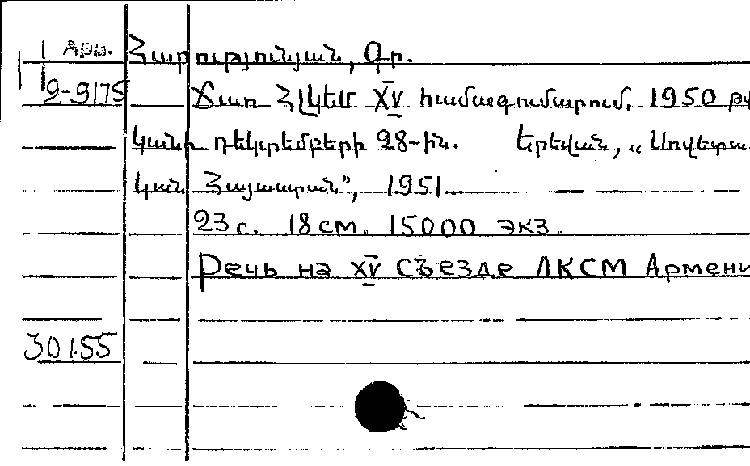 1 Арм. Հարությունյան, Գր.
2-9175 Ճառ ՀԼԿԵՄ XV համագումարում. 1950 թվ
կանի դեկտեմբերի 28-ին. Երեվան, „Սովետա
կան Հայաստան", 1951.
23 с. 18 см. 15000 экз.
Речь на XV съезде ЛКСМ Армени
30155